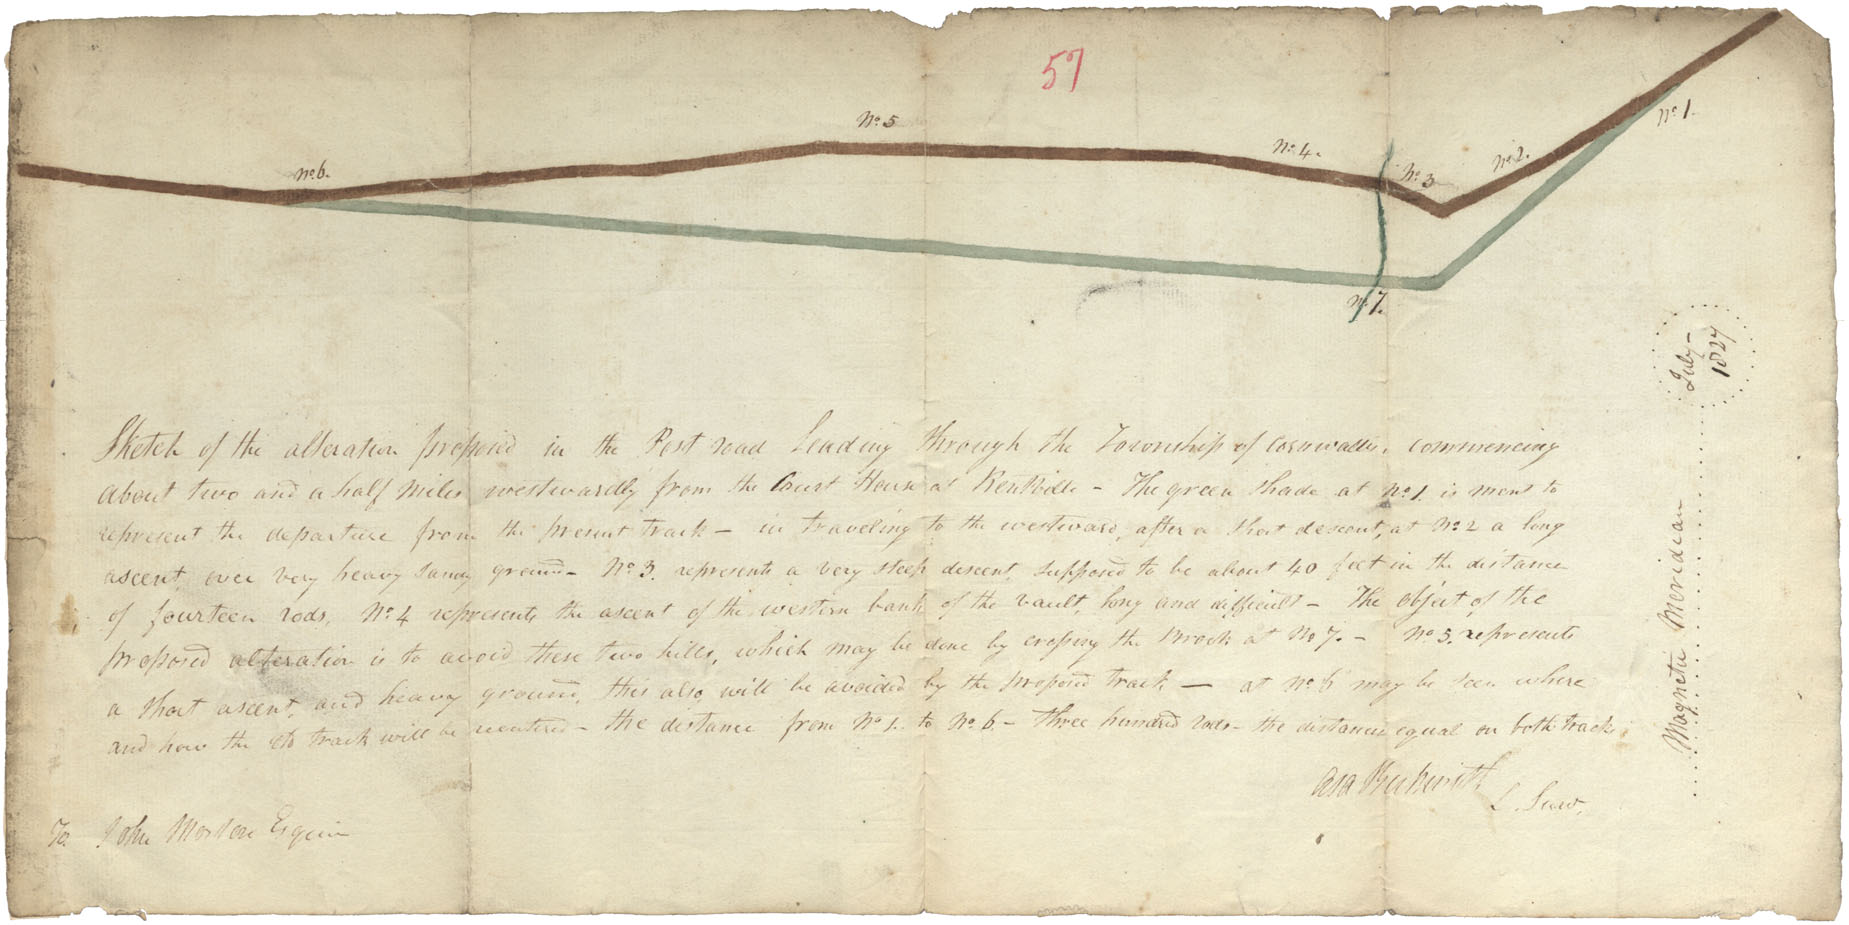 57
No. 5
No. 1.
No. 4.
No. 2.
No. 6.
No. 3
No. 7.
July -
1827
Magnetic Meridian
Sketch of the alteration proposed in the Post road Leading through the Township of Cornwallis, commencing
about two and a half miles westwardly from the Court House at Kentville - The green shade at No. 1. is ment to
represent the departure from the present track - in traveling to the westward, after a short descent, at No. 2 a long
ascent, over very heavy sandy ground - No. 3. represents a very steep descent, supposed to be about 40 feet in the distance
of fourteen rods, No. 4 represents the ascent of the western bank of the vault, long and difficult - The object of the
proposed alteration is to avoid these two hills, which may be done by crossing the Brook at No 7. - No. 5. represents
a short ascent, and heavy ground, this also will be avoided by the proposed track - at No. 6 may be seen where
and how the old track will be reentered - the distance from No. 1. to No. 6 - three hundred rods - the distance equal on both tracks
Asa Beckwith
L. Surv.
To John Morton Esquire